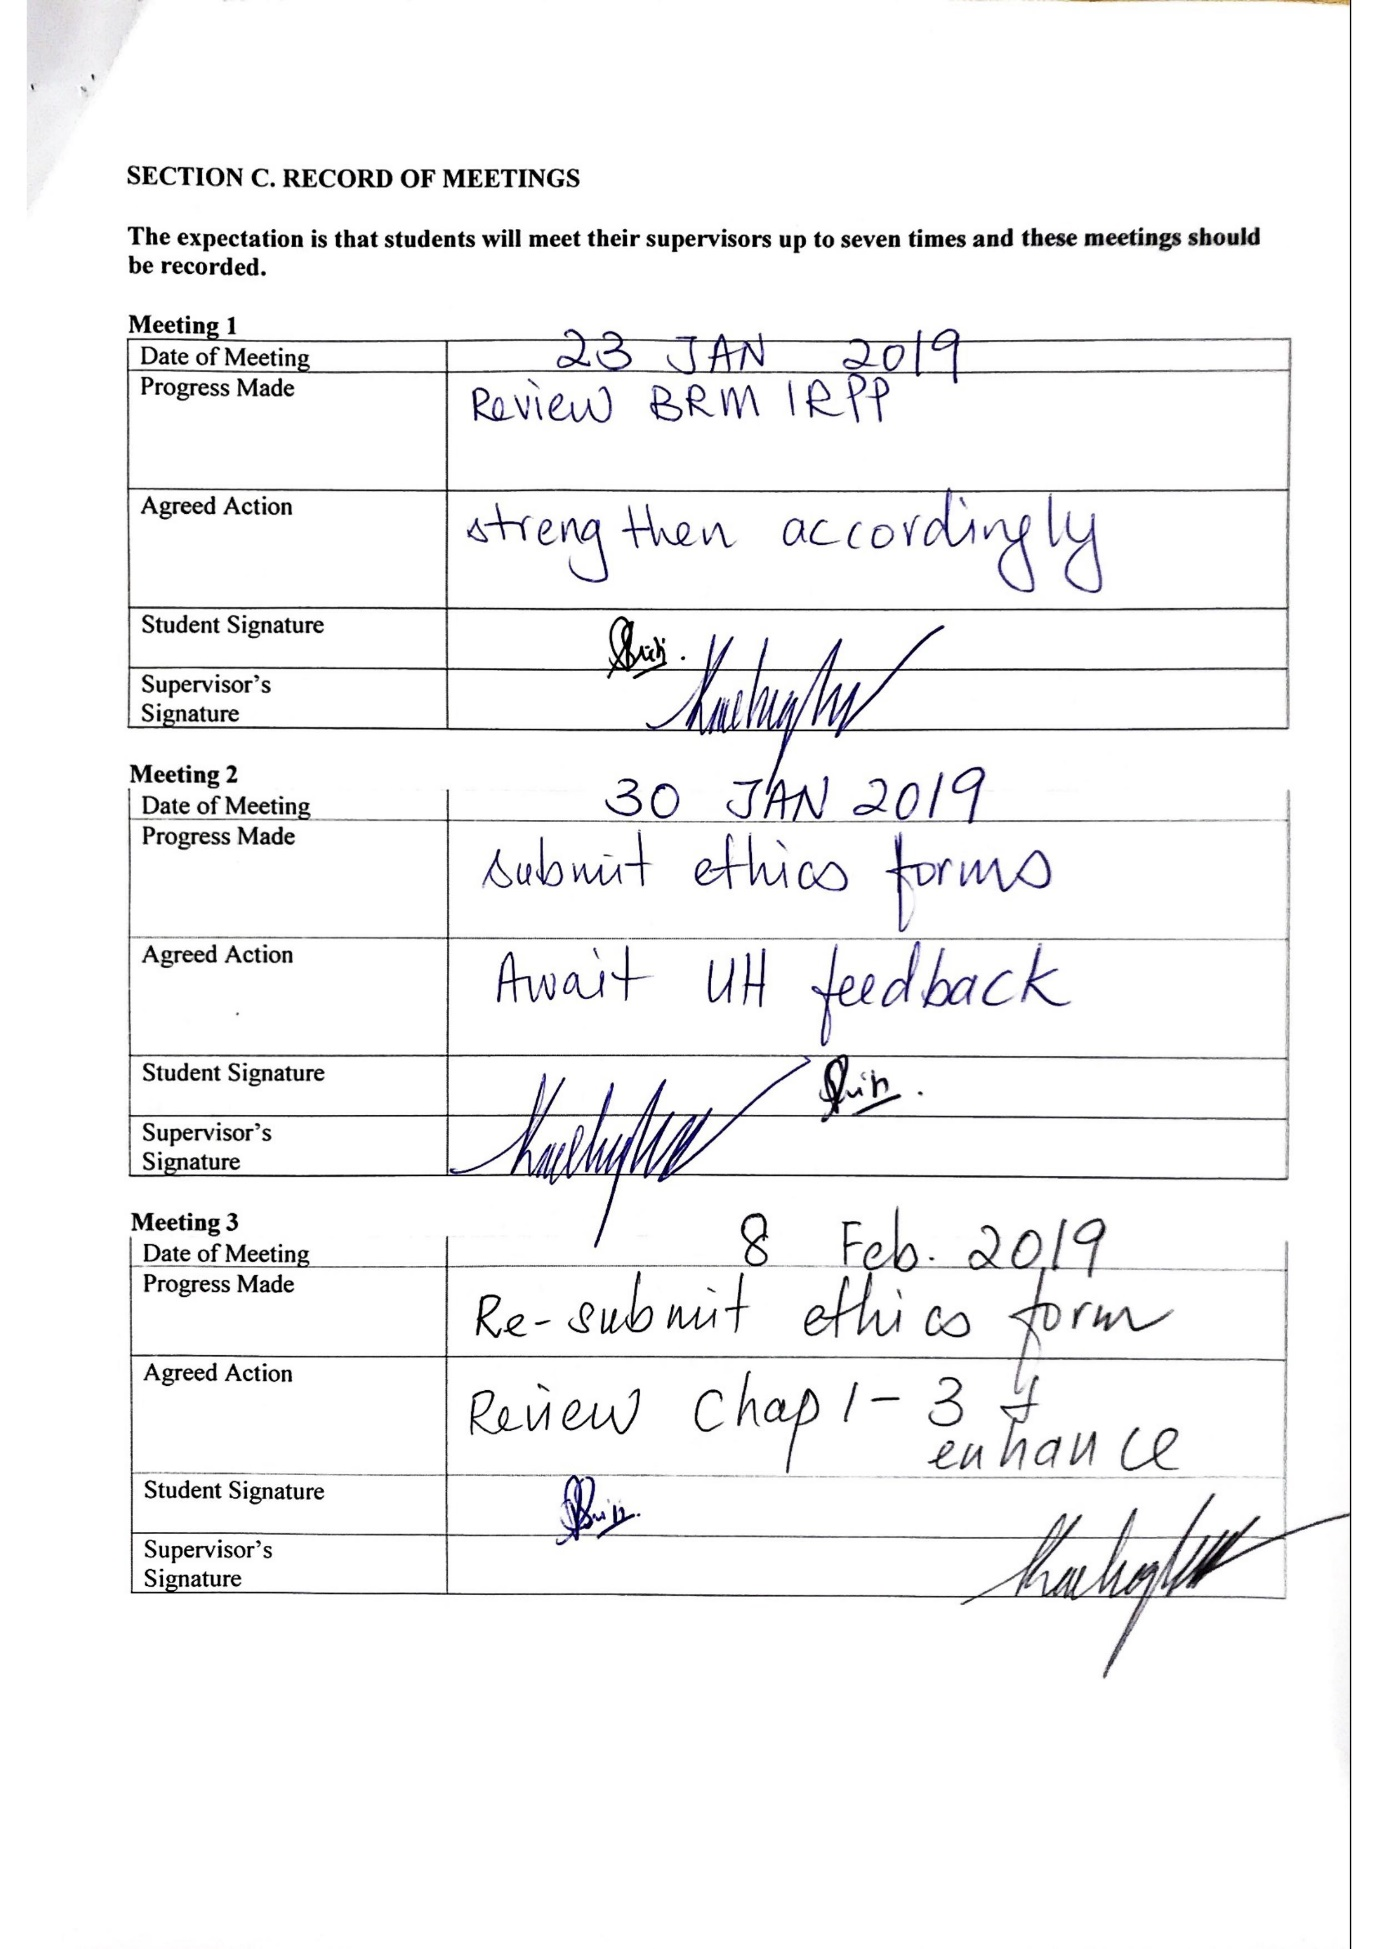 SECTION C. RECORD OF MEETINGS
The expectation is that students will meet their supervisors up to seven times and these meetings should
be recorded.
Meeting 1
Date of Meeting 23 JAN 2019
Progress Made Review BRM IRPP
Agreed Action strengthen accordingly
Student Signature
Supervisor's
Signature
Meeting 2
Date of Meeting 30 JAN 2019
Progress Made submit ethics forms
Agreed Action Await UH feedback
Student Signature
Supervisor's
Signature
Meeting 3
Date of Meeting 8 Feb. 2019
Progress Made Re-submit ethics form
Agreed Action Review Chap 1-3 &
enhance
Student Signature
Supervisor's
Signature